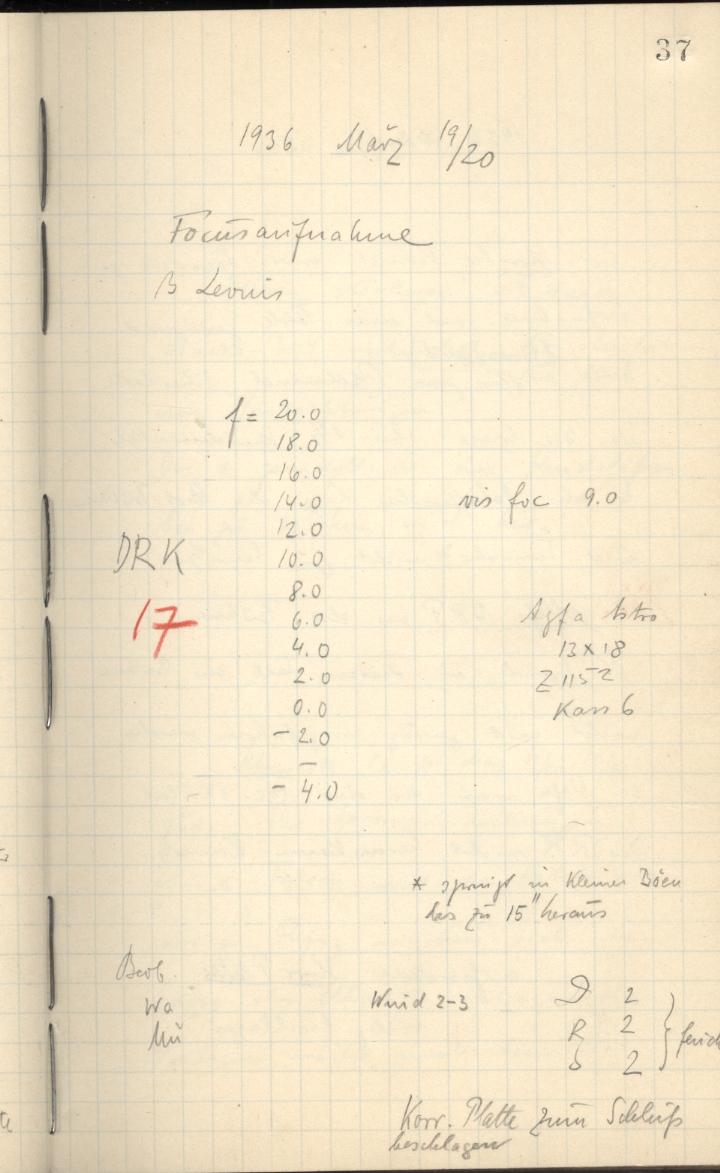 37
1936 März 19/20
Focusaufnahme
β Leonis
f = 20.0
18.0
16.0
14.0
vis foc 9.0
12.0
10.0
DRK
8.0
6.0
17
Agfa Astro
4.0
13 x 18
2.0
Z 1152
0.0
Kass 6
- 2.0
–
- 4.0
* springt in kleinen Böen
bis zu 15" heraus
Beob.
Wa
Mü
Wind 2-3
D 2
R 2
S 2
Korr. Platte zum Schluß
beschlagen